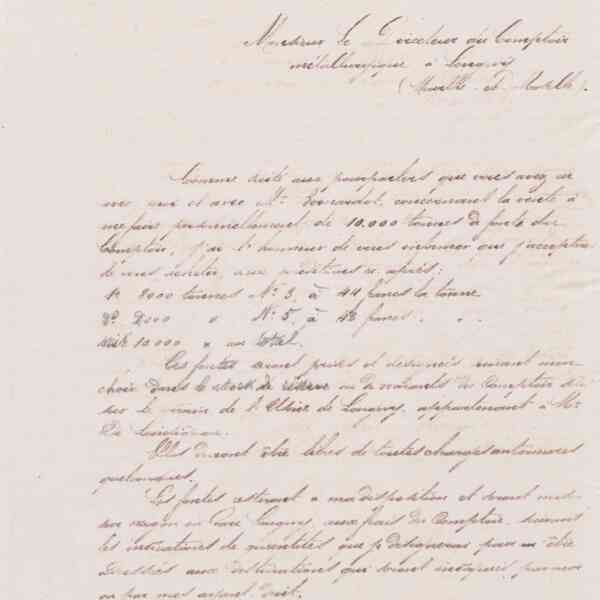 Monsieur le Directeur du Comptoir
métallurgique à Longwy
(Meurthe et Moselle).
Comme suite aux pourparlers que vous avez eu
avec moi et avec Mr concernant la vente à
me faire personnellement de 10.000 tonnes de fonte du
Comptoir, j'ai l'honneur de vous informer que j'accepte
de vous acheter aux conditions ci après:
1° 8000 tonnes No 3, à 44 francs la tonne
2° 2000 " No 5, à 42 francs. " "
soit 10.000 " au total.
Ces fontes seront prises et suivant mon
choix dans le stock de réserve ou de du Comptoir
sur le de l'Usine de Longwy, appartenant à Mr
De
Elles devront être libres de toutes charges antérieures
Les fontes resteront à ma disposition et seront mises
sur wagon en gare Longwy, aux frais du Comptoir, suivant
les indications de quantités que je désignerai pour en être
aux destinations qui seront indiquées par moi
ou par mes ayant droit.